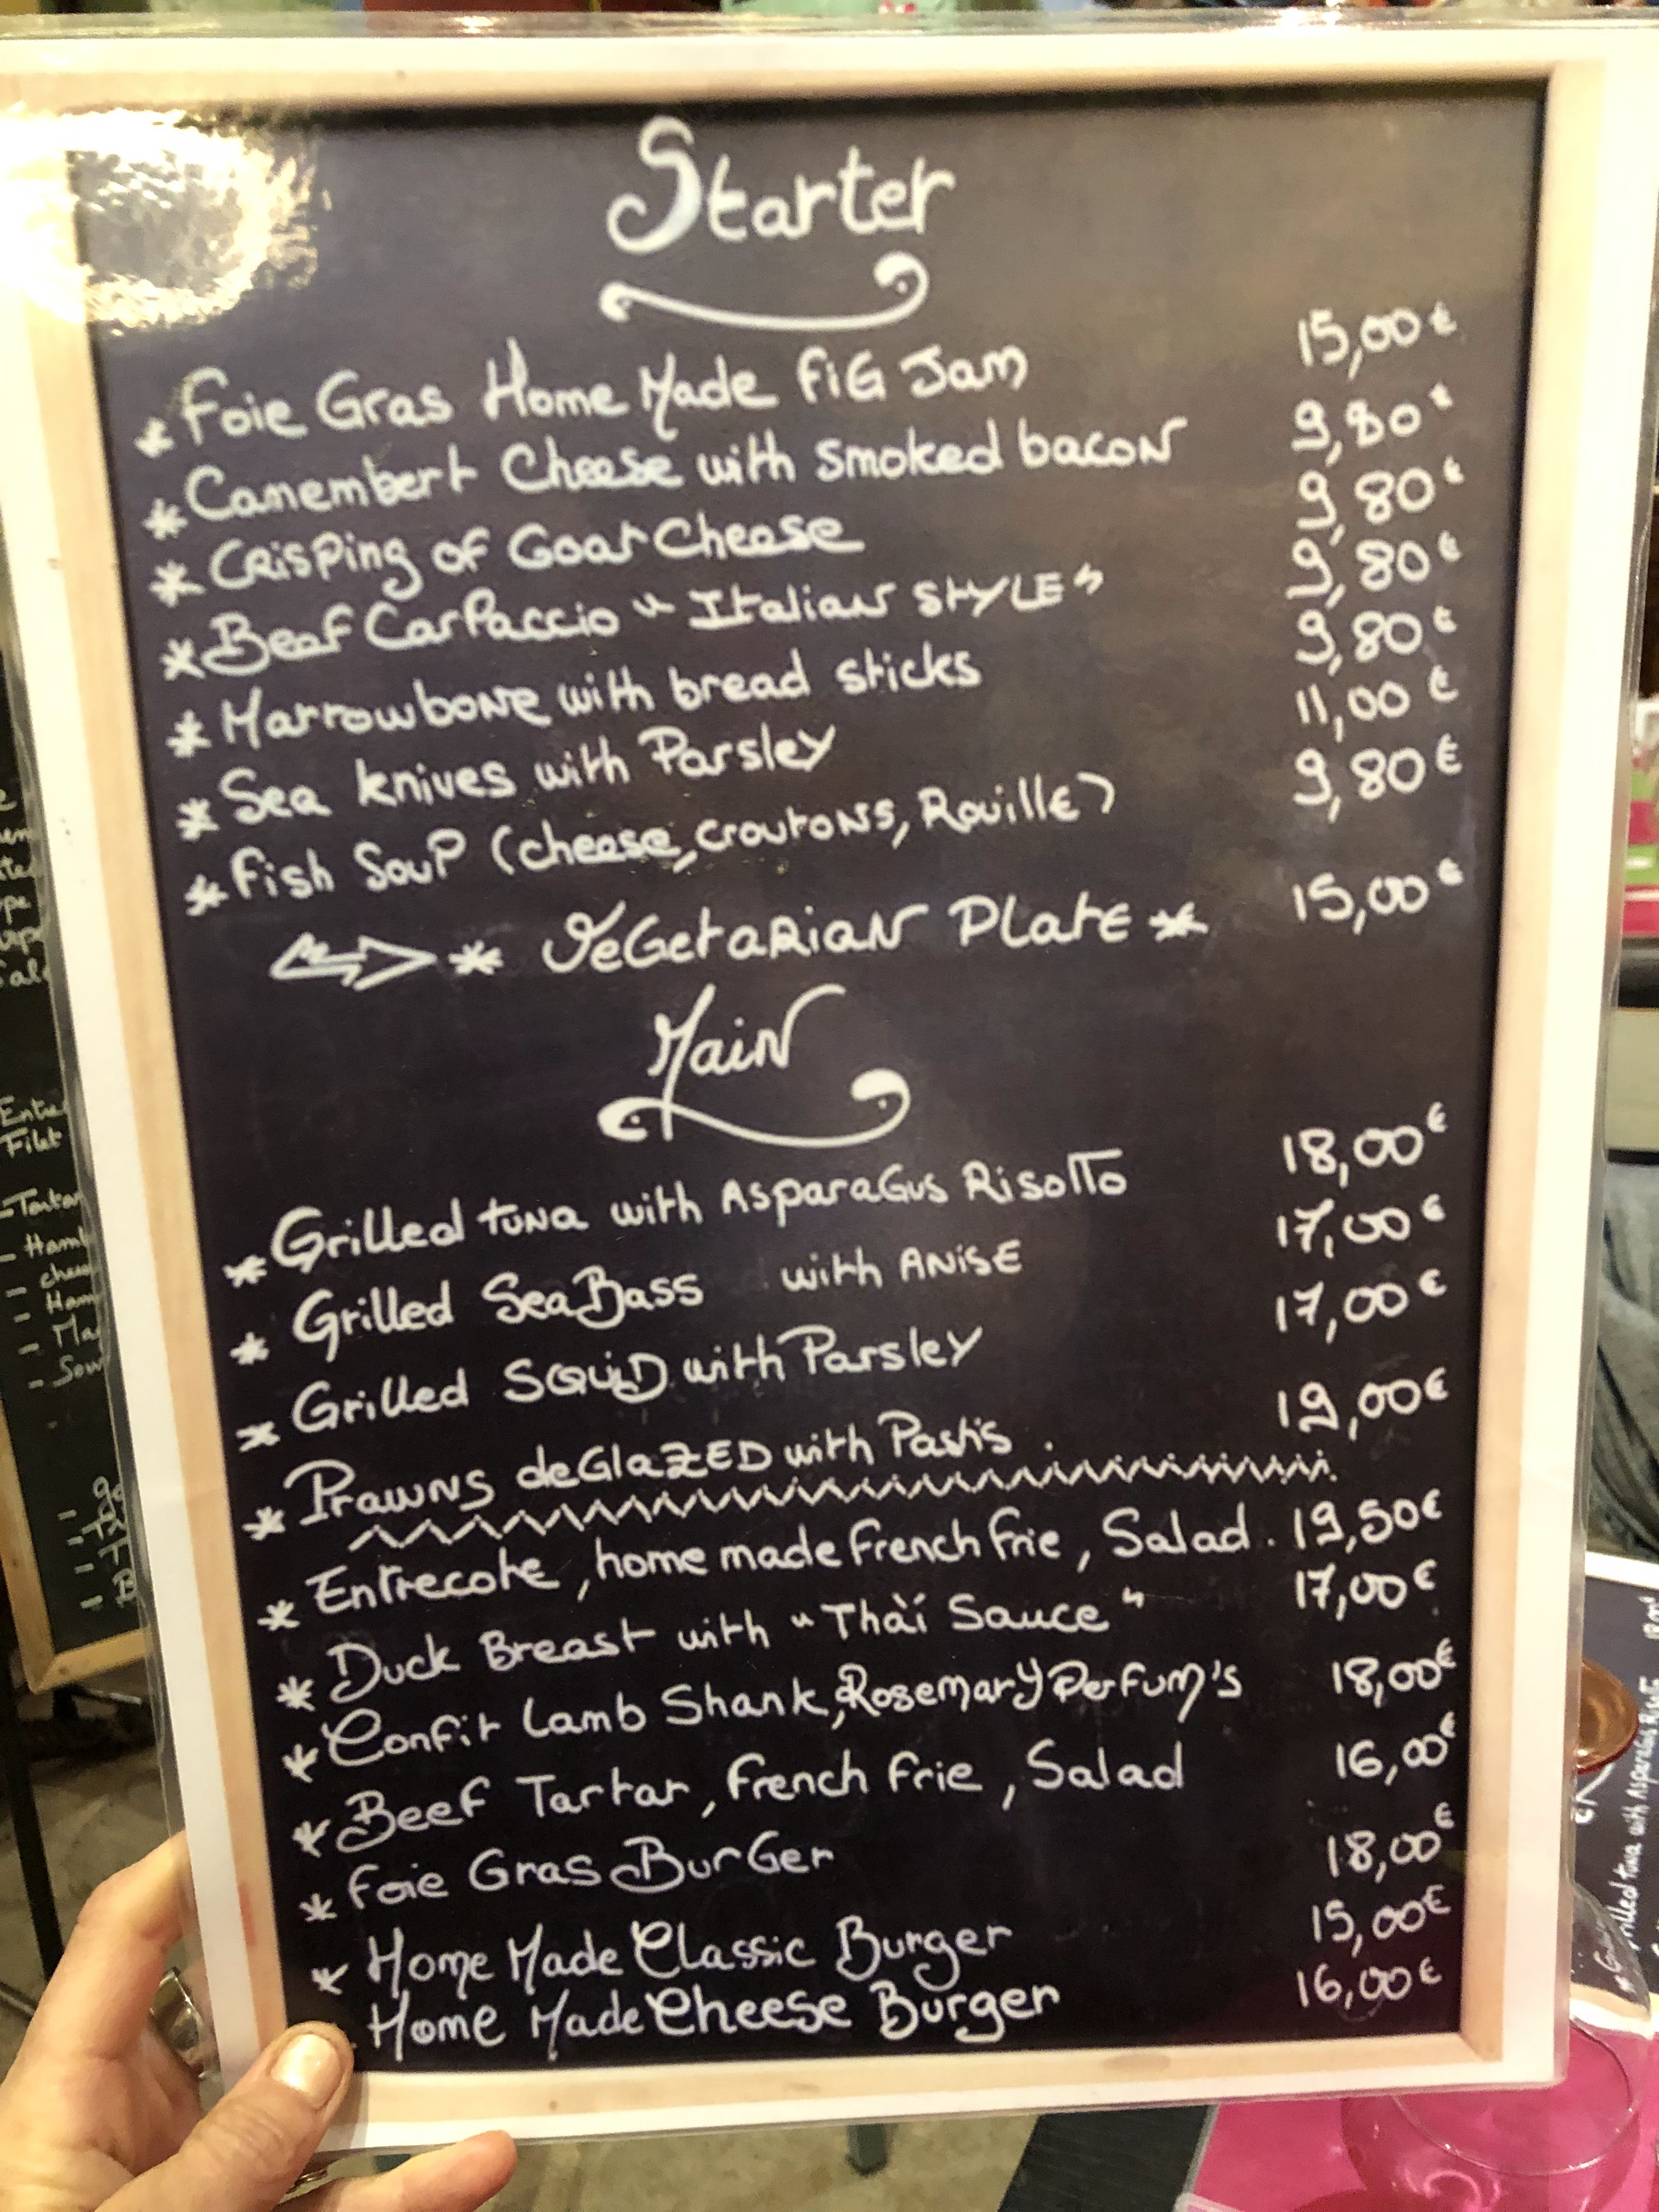 Starter
* Foie Gras Home Made FiG Jam 15,00 €
* Camembert Cheese with smoked bacon 9,80 €
* Crisping of Goat Cheese 9,80 €
* Beef Carpaccio "Italian STYLE" 9,80 €
* Marrowbone with bread sticks 9,80 €
* Sea knives with Parsley 11,00 €
* Fish Soup (cheese, croutons, Rouille) 9,80 €
* VeGetaRian PLatE * 15,00 €
Main
* Grilled tuna with AsparaGus Risotto 18,00 €
* Grilled SeaBass with ANiSE 17,00 €
* Grilled SQUiD with Parsley 17,00 €
* Prawns deGlaZED with Pastis. 19,00 €
* Entrecote, home made French Frie, Salad. 19,50 €
* Duck Breast with "Thaï Sauce" 17,00 €
* Confit Lamb Shank, Rosemary Perfum's 18,00 €
* Beef Tartar, French Frie, Salad 16,00 €
* Foie Gras BurGer 18,00 €
* Home Made Classic Burger 15,00 €
Home Made Cheese Burger 16,00 €
Entre
Filet